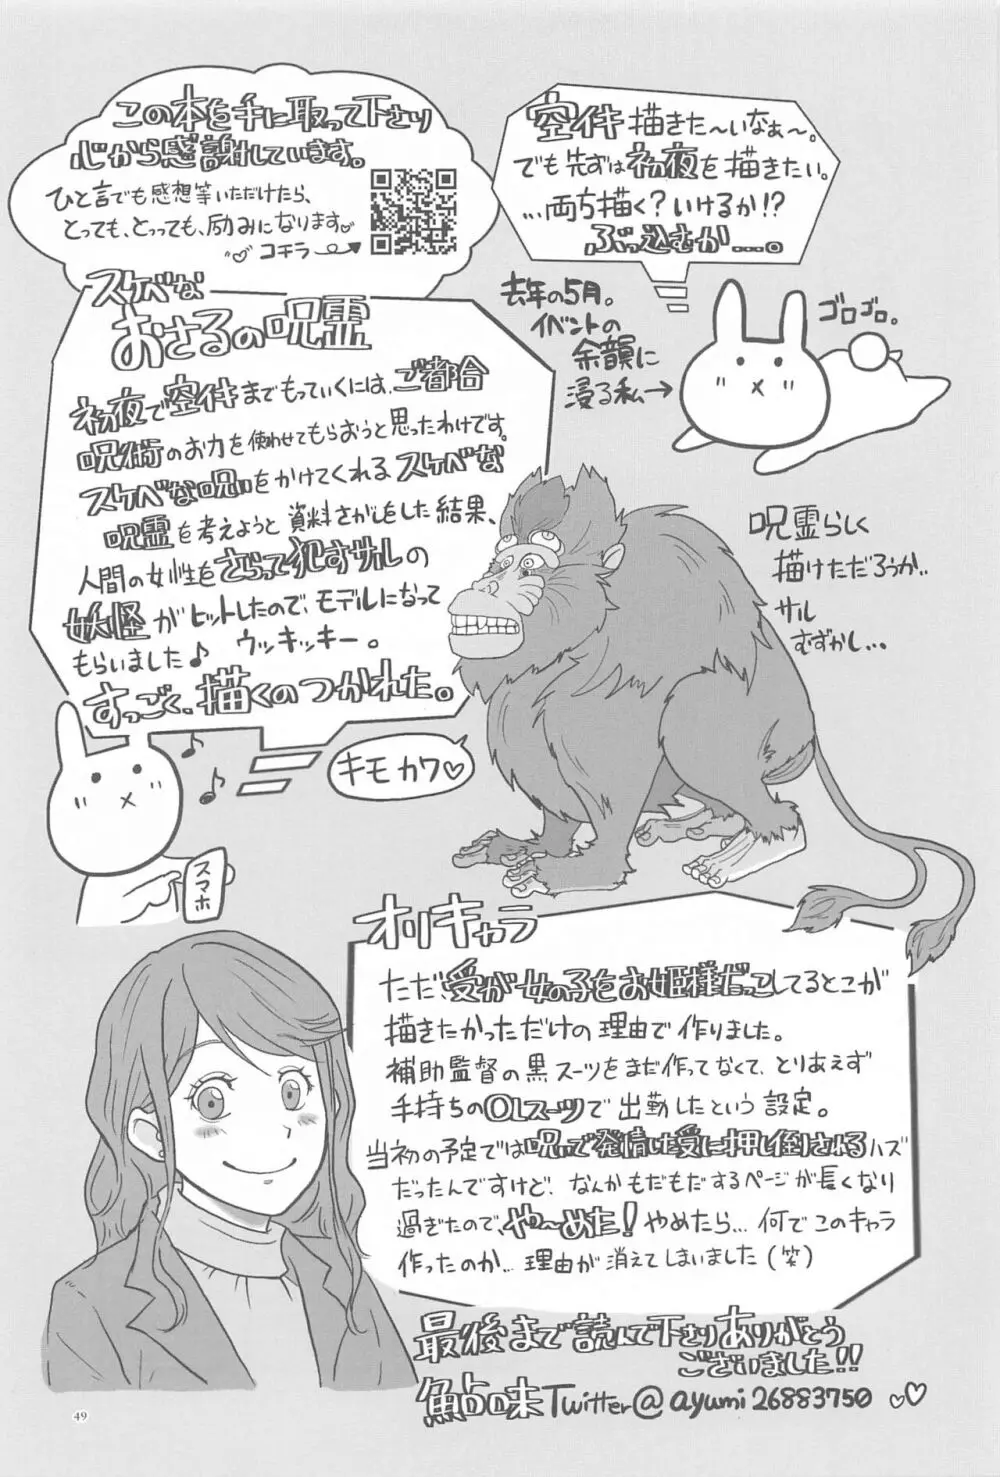 この本を手に取って下さり
心から感謝しています。
ひと言でも感想等いただけたら、
とっても、とっっても、励みになります♡
コチラ
空イキ描きた〜いなぁ〜。
でも先ずは初夜を描きたい。
…両方描く？いけるか!?
ぶっ込むか……。
去年の5月。
イベントの
余韻に
浸る私→
ゴロゴロ。
スケベな
おさるの呪霊
初夜で空イキまでもっていくには、ご都合
呪術のお力を使わせてもらおうと思ったわけです。
スケベな呪いをかけてくれるスケベな
呪霊を考えようと資料さがしをした結果、
人間の女性をさらって犯すサルの
妖怪がヒットしたので、モデルになって
もらいました♪ ウッキッキー。
すっごく、描くのつかれた。
呪霊らしく
描けただろうか..
サル
むずかし...
キモカワ♡
スマホ
オリキャラ
ただ、受が女の子をお姫様だっこしてるとこが
描きたかっただけの理由で作りました。
補助監督の黒スーツをまだ作ってなくて、とりあえず
手持ちのOLスーツで出勤したという設定。
当初の予定では呪いで発情した受に押し倒されるハズ
だったんですけど、なんかもだもだするページが長くなり
過ぎたので、や〜めた！やめたら…何でこのキャラ
作ったのか…理由が消えてしまいました(笑)
最後まで読んで下さりありがとう
ございました!!
鮎味 Twitter@ayumi26883750
49